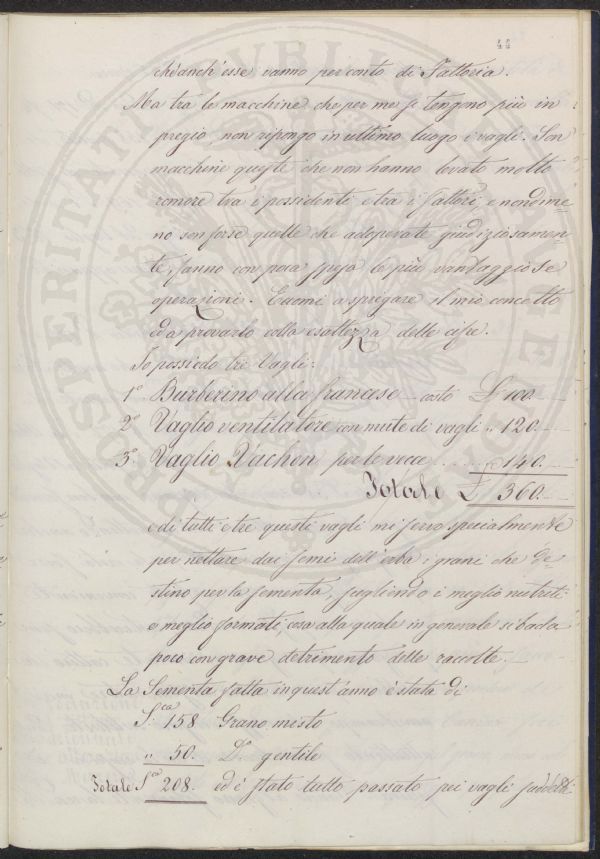 44
ch'anch'esse vanno per conto di Fattoria.
Ma tra le macchine che per me si tengono più in
pregio, non ripongo in ultimo luogo i vagli. Son
macchine queste che non hanno levato molto
romore tra i possidenti e tra i fattori, e nondime
no son forse quelle che adoperate giudiziosamen-
te, fanno con poca spesa le più vantaggiose
operazioni. Eccomi a spiegare il mio concetto
ed a provarlo colla esattezza delle cifre.
Io possiedo tre Vagli:
1º Burberino alla francese costò £ 100.
2º Vaglio ventilatore con mute di vagli " 120.
3º Vaglio Vachon per le vecce . . . . " 140.
Totale £ 360.
e di tutti e tre questi vagli mi servo specialmente
per nettare dai semi dell'erba i grani che de-
stino per la sementa, scegliendo i meglio nutriti
e meglio formati, cosa alla quale in generale si bada
poco con grave detrimento delle raccolte.
La Sementa fatta in quest'anno è stata di
S.ca 158 Grano misto
" 50. D.º gentile
Totale S.ca 208. ed è stato tutto passato pei vagli suddetti.
PUBLICA
PROSPERITATI